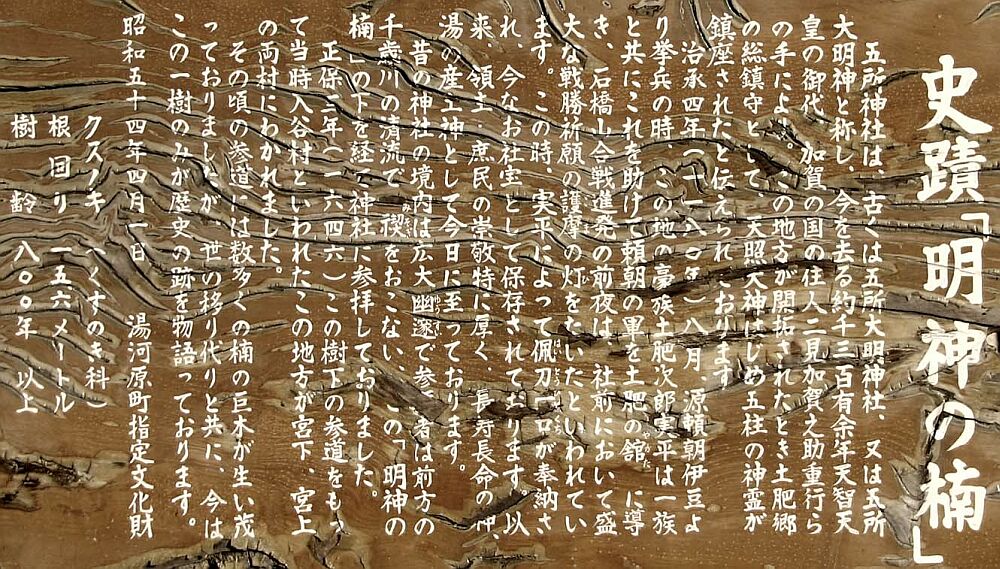 史蹟「明神の楠」
五所神社は、古くは五所大明神社、又は五所
大明神と称し、今を去る約千三百有余年天智天
皇の御代、加賀の国の住人二見加賀之助重行ら
の手によって、この地方が開拓されたとき土肥郷
の総鎮守として、天照大神はじめ五柱の神霊が
鎮座されたと伝えられております。
治承四年(一一八〇年)八月、源頼朝伊豆よ
り挙兵の時、この地の豪族土肥次郎実平は一族
と共にこれを助けて頼朝の軍を土肥の館に導
き、石橋山合戦進発の前夜は、社前において盛
大な戦勝祈願の護摩の灯をたいたといわれてい
ます。この時、実平によって佩刀一口が奉納さ
れ、今なお社宝として保存されております。以
来、領主、庶民の崇敬特に厚く、長寿長命の神、
湯の産土神として今日に至っております。
昔の神社の境内は広大幽邃で参拝者は前方の
千歳川の清流で禊をおこない、この「明神の
楠」の下を経て神社に参拝しておりました。
正保三年(一六四六)この樹下の参道をもっ
て当時入谷村といわれたこの地方が宮下、宮上
の両村にわかれました。
その頃の参道には数多くの楠の巨木が生い茂
っておりましたが、世の移り代りと共に、今は
この一樹のみが歴史の跡を物語っております。
昭和五十四年四月一日 湯河原町指定文化財
クスノキ(くすのき科)
根回り 一五六メートル
樹齢 八〇〇年以上